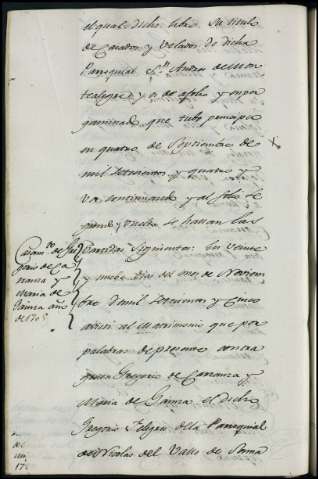 el qual dicho libro Su titulo
de Casados y Velados de dicha
Parroquial Sn. Andres de Mon
tealegre y es de afolio y enper
gaminado que tubo principio
en quatro de Noviembre de
mil setecientos y quatro y
va continuando y al folio se
gundo y vuelta se hallan las
Partidas Siguientes: En veinte
y nuebe dias del mes de Noviem
bre de mil setecientos y Cinco
asisti al Matrimonio que por
palabras de presente contra
geron Gregorio de Carranza y
Maria de Gainza el dicho
Gregorio feligres de la Parroquial
de Sn Nicolas del Valle de Soma
Casamto. de Gre
gorio de Ca
rranza y
Maria de
Gainza año
de 1705